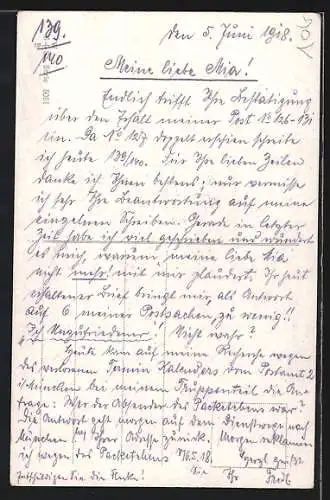 139/140
den 5. Juni 1918.
105
Meine liebe Mia!
Endlich trifft Ihre Bestätigung
über den Erhalt meiner Post No 126-131
ein. Da No 127 doppelt erschien schreibe
ich heute 139/140. Für Ihre lieben Zeilen
danke ich Ihnen bestens; nur vermisse
ich sehr Ihre Beantwortung auf meine
einzelnen Schreiben. Gerade in letzter
Zeit habe ich viel geschrieben und wundert
es mich, warum, meine liebe Mia
nicht mehr! mit mir plaudert. Ihr heut
erhaltener Brief bringt mir als Antwort
auf 6 meiner Postsachen zu wenig!!
"Ich Unzufriedener"! Nicht wahr?
Heute kam auf meine Recherche wegen
des verlorenen Kalenders vom Postamt 2
München bei meinem Truppenteil die An-
frage: Wer der Absender des Packetchens war?
Die Antwort geht morgen auf dem Dienstwege nach
München mit Ihrer Adresse zurück. Morgen reklamiere
ich wegen des Packetchens v. 18.
Herzl. grüßt
Sie Ihr
Entschuldigen Sie die Flecken!